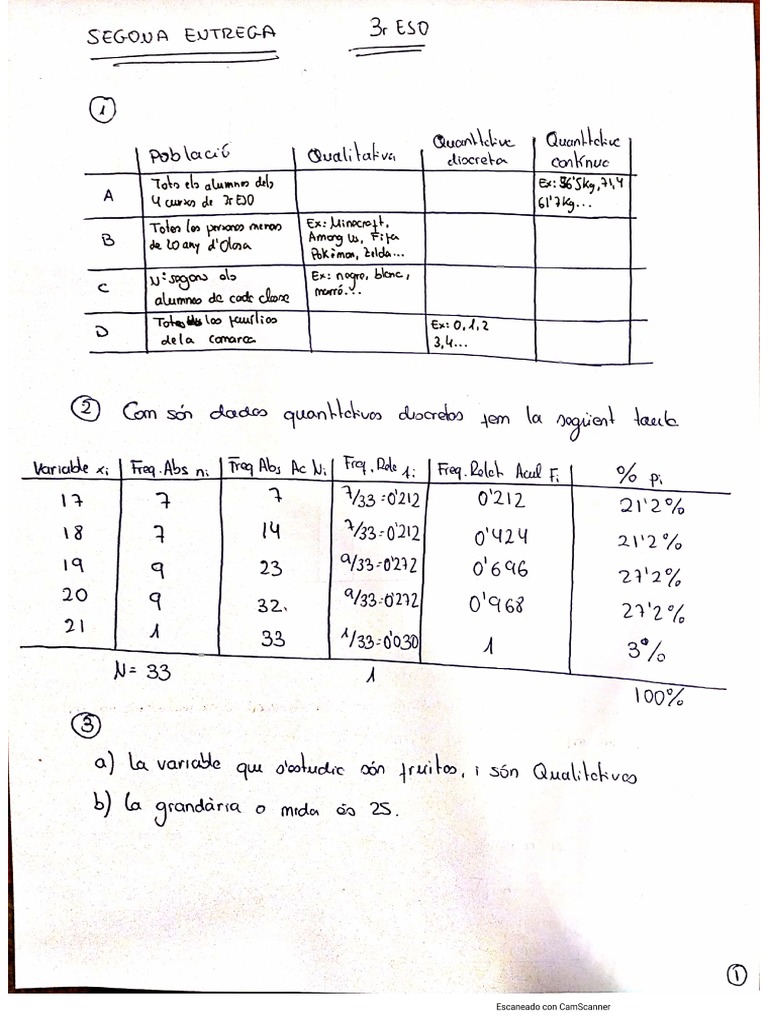 SEGONA ENTREGA 3r ESO
1
Població Qualitativa Quantitativa discreta Quantitativa contínua
A Tots els alumnes dels 4 cursos de 3r ESO Ex: 56'5kg, 71,4 61'7kg...
B Totes les persones menors de 20 any d'Olesa Ex: Minecraft, Among us, Fifa Pokémon, Zelda...
C Nº segons els alumnes de cada classe Ex: negre, blanc, marró...
D Totes les famílies de la comarca Ex: 0, 1, 2 3, 4...
2 Com són dades quantitatives discretes fem la següent taula
Variable xi Freq. Abs ni Freq Abs Ac Ni Freq. Rela fi Freq. Relat Acul Fi % pi
17 7 7 7/33=0'212 0'212 21'2%
18 7 14 7/33=0'212 0'424 21'2%
19 9 23 9/33=0'272 0'696 27'2%
20 9 32. 9/33=0'272 0'968 27'2%
21 1 33 1/33=0'030 1 3%
N= 33 1 100%
3
a) la variable que s'estudia són fruites, i són Qualitatives
b) la grandària o mida és 25.
1
Escaneado con CamScanner